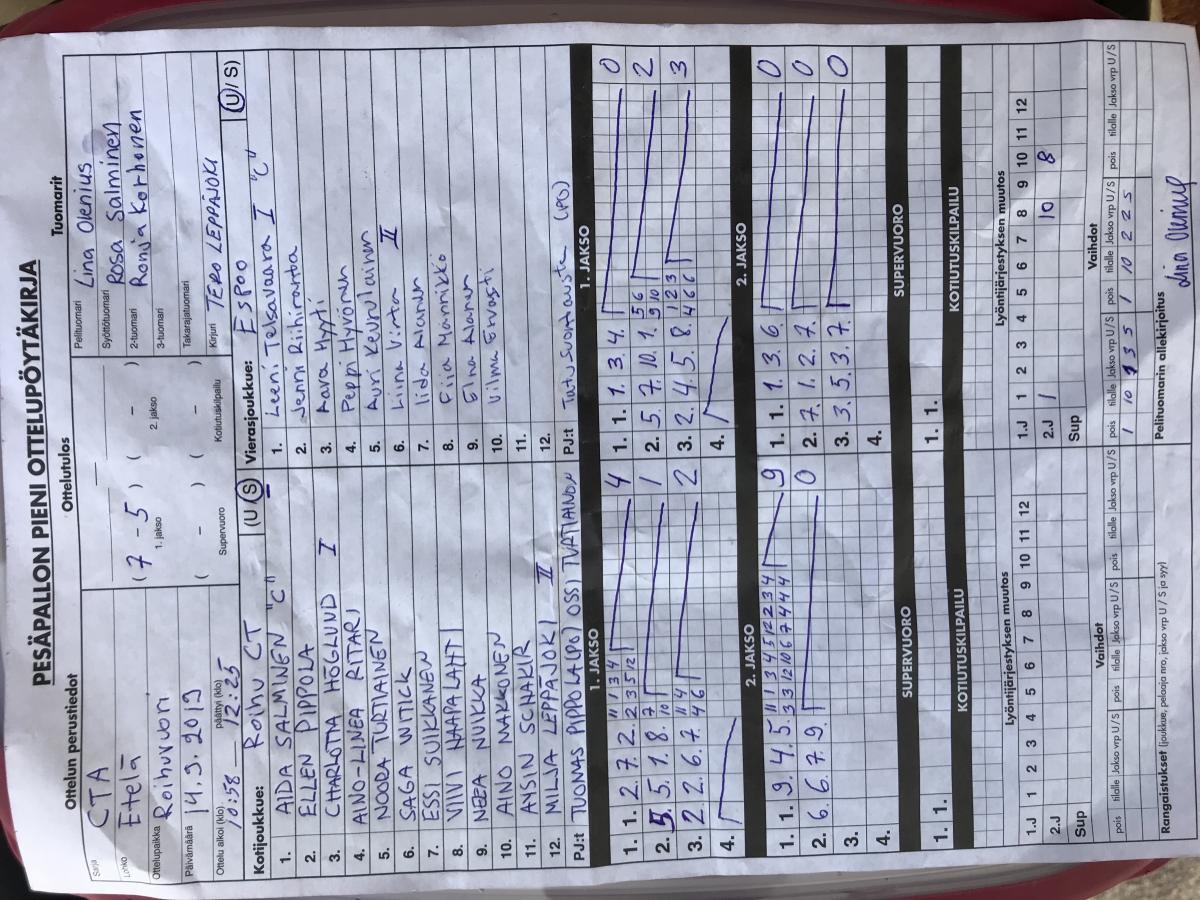 PESÄPALLON PIENI OTTELUPÖYTÄKIRJA
Ottelun perustiedot
Sarja CTA
Lohko Etelä
Ottelupaikka Roihuvuori
Päivämäärä 14.9.2019
Ottelu alkoi (klo) 10:58 päättyi (klo) 12:25
Ottelutulos
( 7 - 5 ) ( - )
1. jakso 2. jakso
( - ) ( - )
Supervuoro Kotiutuskilpailu
Tuomarit
Pelituomari Lina Olenius
Syöttötuomari Rosa Salminen
2-tuomari Ronja Korhonen
3-tuomari
Takarajatuomari
Kirjuri TERO LEPPÄJOKI
Kotijoukkue: Roihu CT (U/S)
1. AIDA SALMINEN "C"
2. ELLEN PIPPOLA
3. CHARLOTTA HÖGLUND I
4. AINO-LINEA RITARI
5. NOODA TURTIAINEN
6. SAGA WITICK
7. ESSI SUIKKANEN
8. VIIVI HAAPALAHTI
9. NEEA NUIKKA
10. AINO NAKKONEN
11. ANSIN SCHAKIR
12. MILJA LEPPÄJOKI II
PJ:t TUOMAS PIPPOLA (PO) OSSI
Vierasjoukkue: ESPOO (U/S)
1. Leeni Toisavaara I "C"
2. Jenni Riihiranta
3. Aava Hyyti
4. Peppi Hyvönen
5. Auri Keurulainen
6. Liina Virta II
7. Iida Aianen
8. Fiia Männikkö
9. Elna Alanen
10. Vilma Ervasti
11.
12.
PJ:t Tutu Suontausta (PO)
1. JAKSO
1. 1. 2. 7. 2. 4
2. 5. 1. 8. 1
3. 2. 6. 7. 2
4.
1. JAKSO
1. 1. 1. 3. 4. 0
2. 5. 7. 10. 1. 2
3. 2. 4. 5. 8. 3
4.
2. JAKSO
1. 1. 9. 4. 5. 9
2. 6. 6. 7. 9. 0
3.
4.
2. JAKSO
1. 1. 1. 3. 6. 0
2. 7. 1. 2. 7. 0
3. 3. 5. 3. 7. 0
4.
SUPERVUORO
1. 1.
SUPERVUORO
1. 1.
KOTIUTUSKILPAILU
KOTIUTUSKILPAILU
Lyöntijärjestyksen muutos
1 2 3 4 5 6 7 8 9 10 11 12
1.J
2.J
Sup
Lyöntijärjestyksen muutos
1.J 1 2 3 4 5 6 7 8 9 10 11 12
2.J 1 10 8
Sup
Vaihdot
pois tilalle Jakso vrp U/S pois tilalle Jakso vrp U/S pois tilalle Jakso vrp U/S
Vaihdot
pois tilalle Jakso vrp U/S pois tilalle Jakso vrp U/S pois tilalle Jakso vrp U/S
1 10 1 3 5 1 10 2 2 5
Rangaistukset (joukkue, pelaaja nro, jakso vrp U / S ja syy)
Pelituomarin allekirjoitus